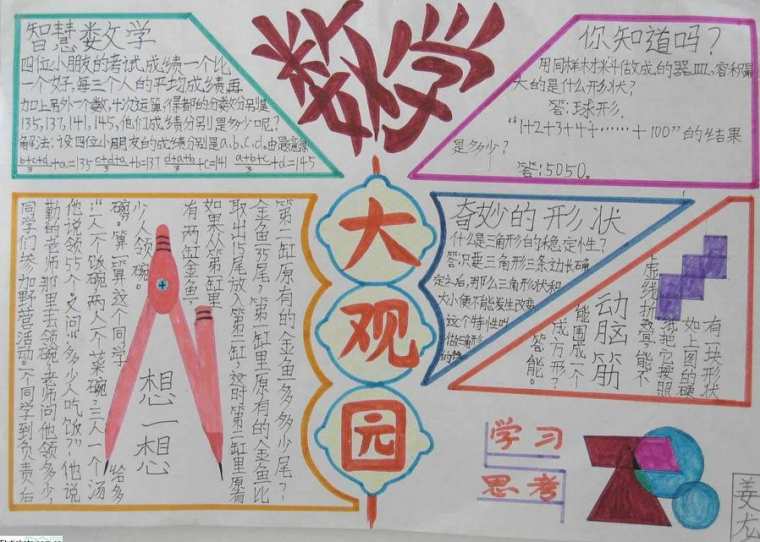 数学
大
观
园
智慧数学
四位小朋友的考试,成绩一个比
一个好,每三个人的平均成绩再
加上另外一个数,
135,137,141,145,他们成绩分别是多少呢?
解法:设四位小朋友的成绩分别是a.b.c.d.由题意得
b+c+d/3+a=135 c+d+a/3+b=137 d+a+b/3+c=141 a+b+c/3+d=145
你知道吗?
用同样材料做成的器皿,容积最
大的是什么形状?
答:球形.
“1+2+3+4+……+100”的结果
是多少?
答:5050。
同学们参加野营活动。一个同学到负责后
勤的老师那里去领碗,老师问他领多少,
他说领55个,又问“多少人吃饭?”他说
“一人一个饭碗,两人一个菜碗,三人一个汤
碗。”算一算这个同学给多
少人领碗。
想一想
有两缸金鱼,
如果从第一缸里
取出15尾放入第二缸,这时第二缸里原有
金鱼35尾。第一缸里原有的金鱼比
第二缸原有的金鱼多多少尾?
奇妙的形状
什么是三角形的稳定性?
答:只要三角形三条边长确
定之后,那么三角形形状和
大小便不能发生改变,
这个特性叫
动脑筋
有一块形状
如上图的硬
纸把它按照
虚线折叠,能不
能围成一个
正方形?
答:能。
学习
思考
姜龙